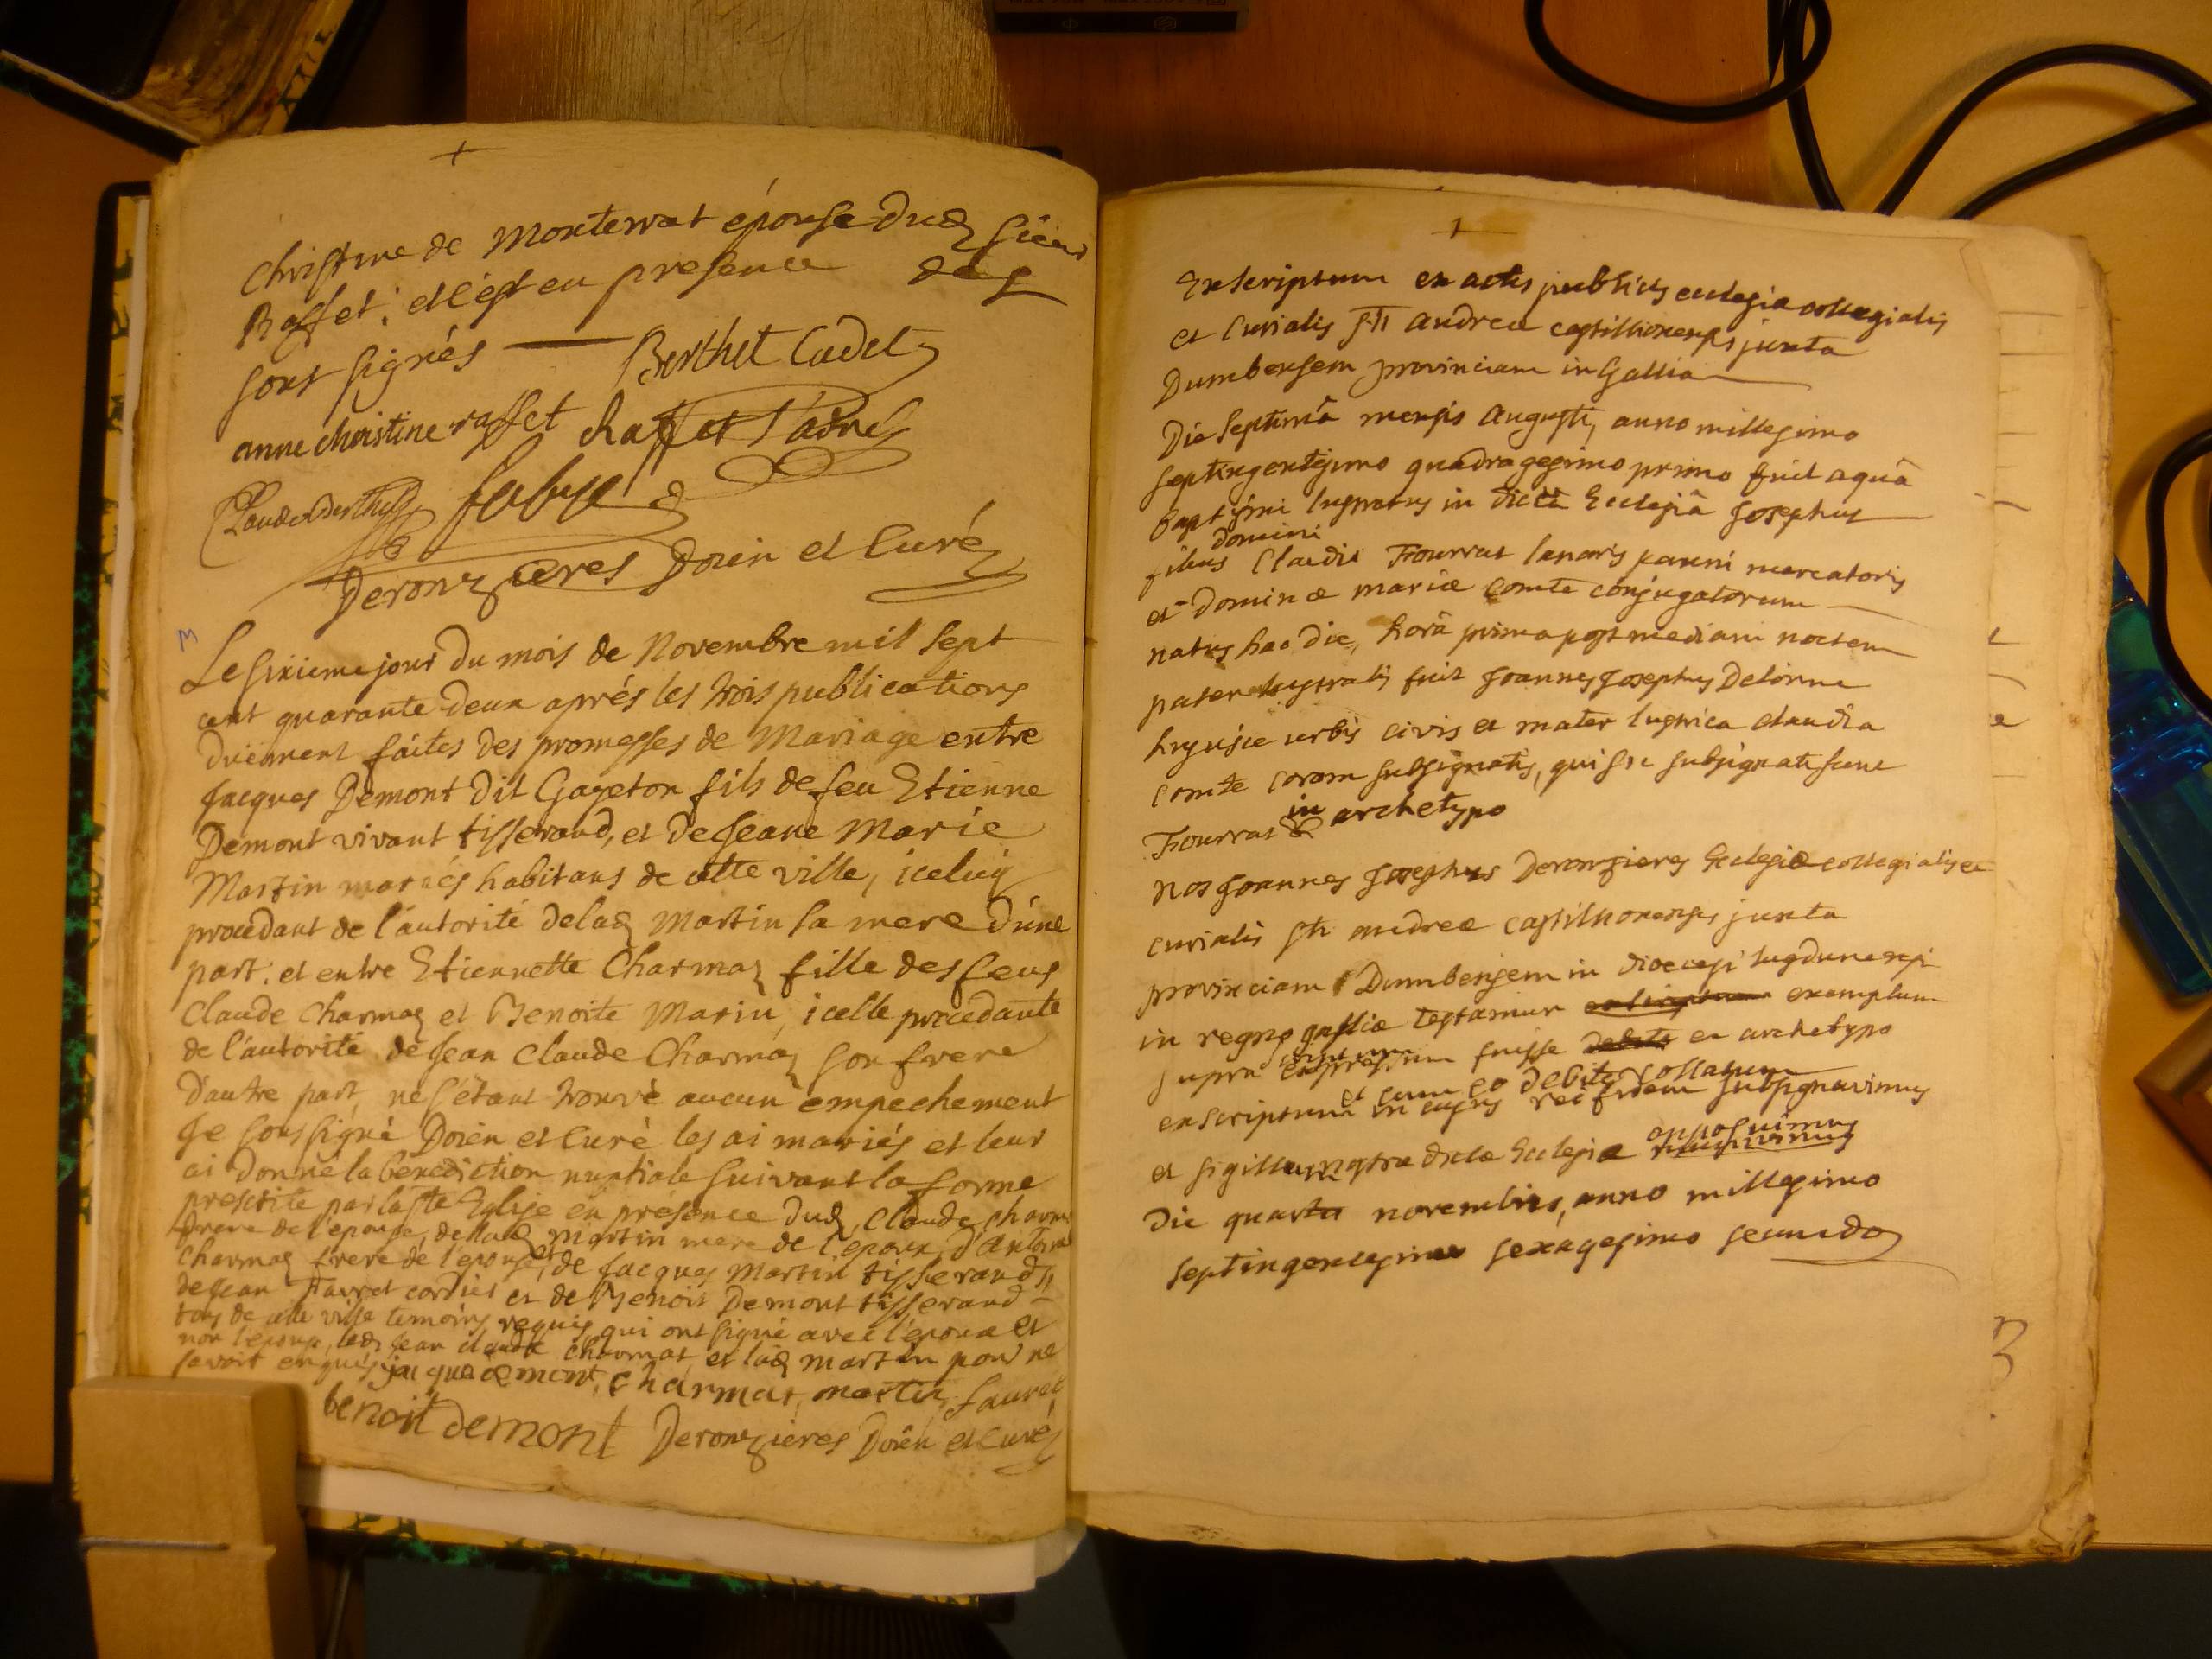 +
christine de Monterrat épouse dud sieur
Raffet; et c'est en presence des
sous signés — Berthet Cadet
anne christine raffet Raffet L'aîné
Claude Berthet
Deronzieres Doien et Curé
M
Le sixieme jour du mois de Novembre mil sept
cent quarante deux aprés les trois publications
duëment faites des promesses de Mariage entre
Jacques Demont dit Gayeton fils de feu Etienne
Demont vivant tisserand, et de Jeane Marie
Martin mariés habitans de cette ville, iceluy
procedant de l'autorité de lad Martin sa mere d'une
part; et entre Etiennette Charmaz fille des feus
Claude Charmaz et Benoite Marin, icelle procedante
de l'autorité de Jean Claude Charmaz son frere
d'autre part, ne s'étant trouvé aucun empechement
Je soussigné Doien et Curé les ai mariés et leur
ai donné la bénédiction nuptiale suivant la forme
prescrite par la Ste Eglise en présence dud, Claude charma
frere de l'epouse, de lad Martin mere de l'epoux, d'antoine
Charmaz frere de l'epouse, et de Jacques Martin tisserand,
de Jean Favret cordier et de Benoit Demont tisserand
tous de cette ville temoins requis qui ont signé avec l'epoux et
non l'epouse, led Jean claude charmat et lad martin pour ne
savoir enquis jaque demont, charmat, martin, fauret
benoit demont Deronzieres Doien et Curé
+
Exscriptum ex actis publicis ecclesiæ collegialis
et Curialis Sti andreæ castillionensis juxta
Dumbensem provinciam in Gallia
Die septimâ mensis Augusti, anno millesimo
septingentesimo quadragesimo primo fuit aquâ
baptismi lustratus in dictâ Ecclesiâ Josephus
domini
filius Claudii Fourrat lanarij panni mercatoris
et Dominæ mariæ comte conjugatorum
natus hac die, horâ prima post mediam noctem
pater lustralis fuit Joannes Josephus Delorme
hujusce urbis civis et mater lustrica claudia
comte coram subsignatis, qui sic subsignati sunt
in archetypo
Fourrat &
Nos Joannes Josephus Deronzieres Ecclesiæ collegialis et
curialis Sti andreæ castillionensis juxta
provinciam Dumbensem in diœcesi lugdunensi
in regno galliæ testamur exscriptum exemplum
supra fuisse debite ex archetypo
et cum eo debite collatum
exscriptum in cujus rei fidem subsignavimus
apposuimus
et sigillum nostræ dictæ Ecclesiæ
Die quarta novembris, anno millesimo
septingentesimo sexagesimo secundo
3